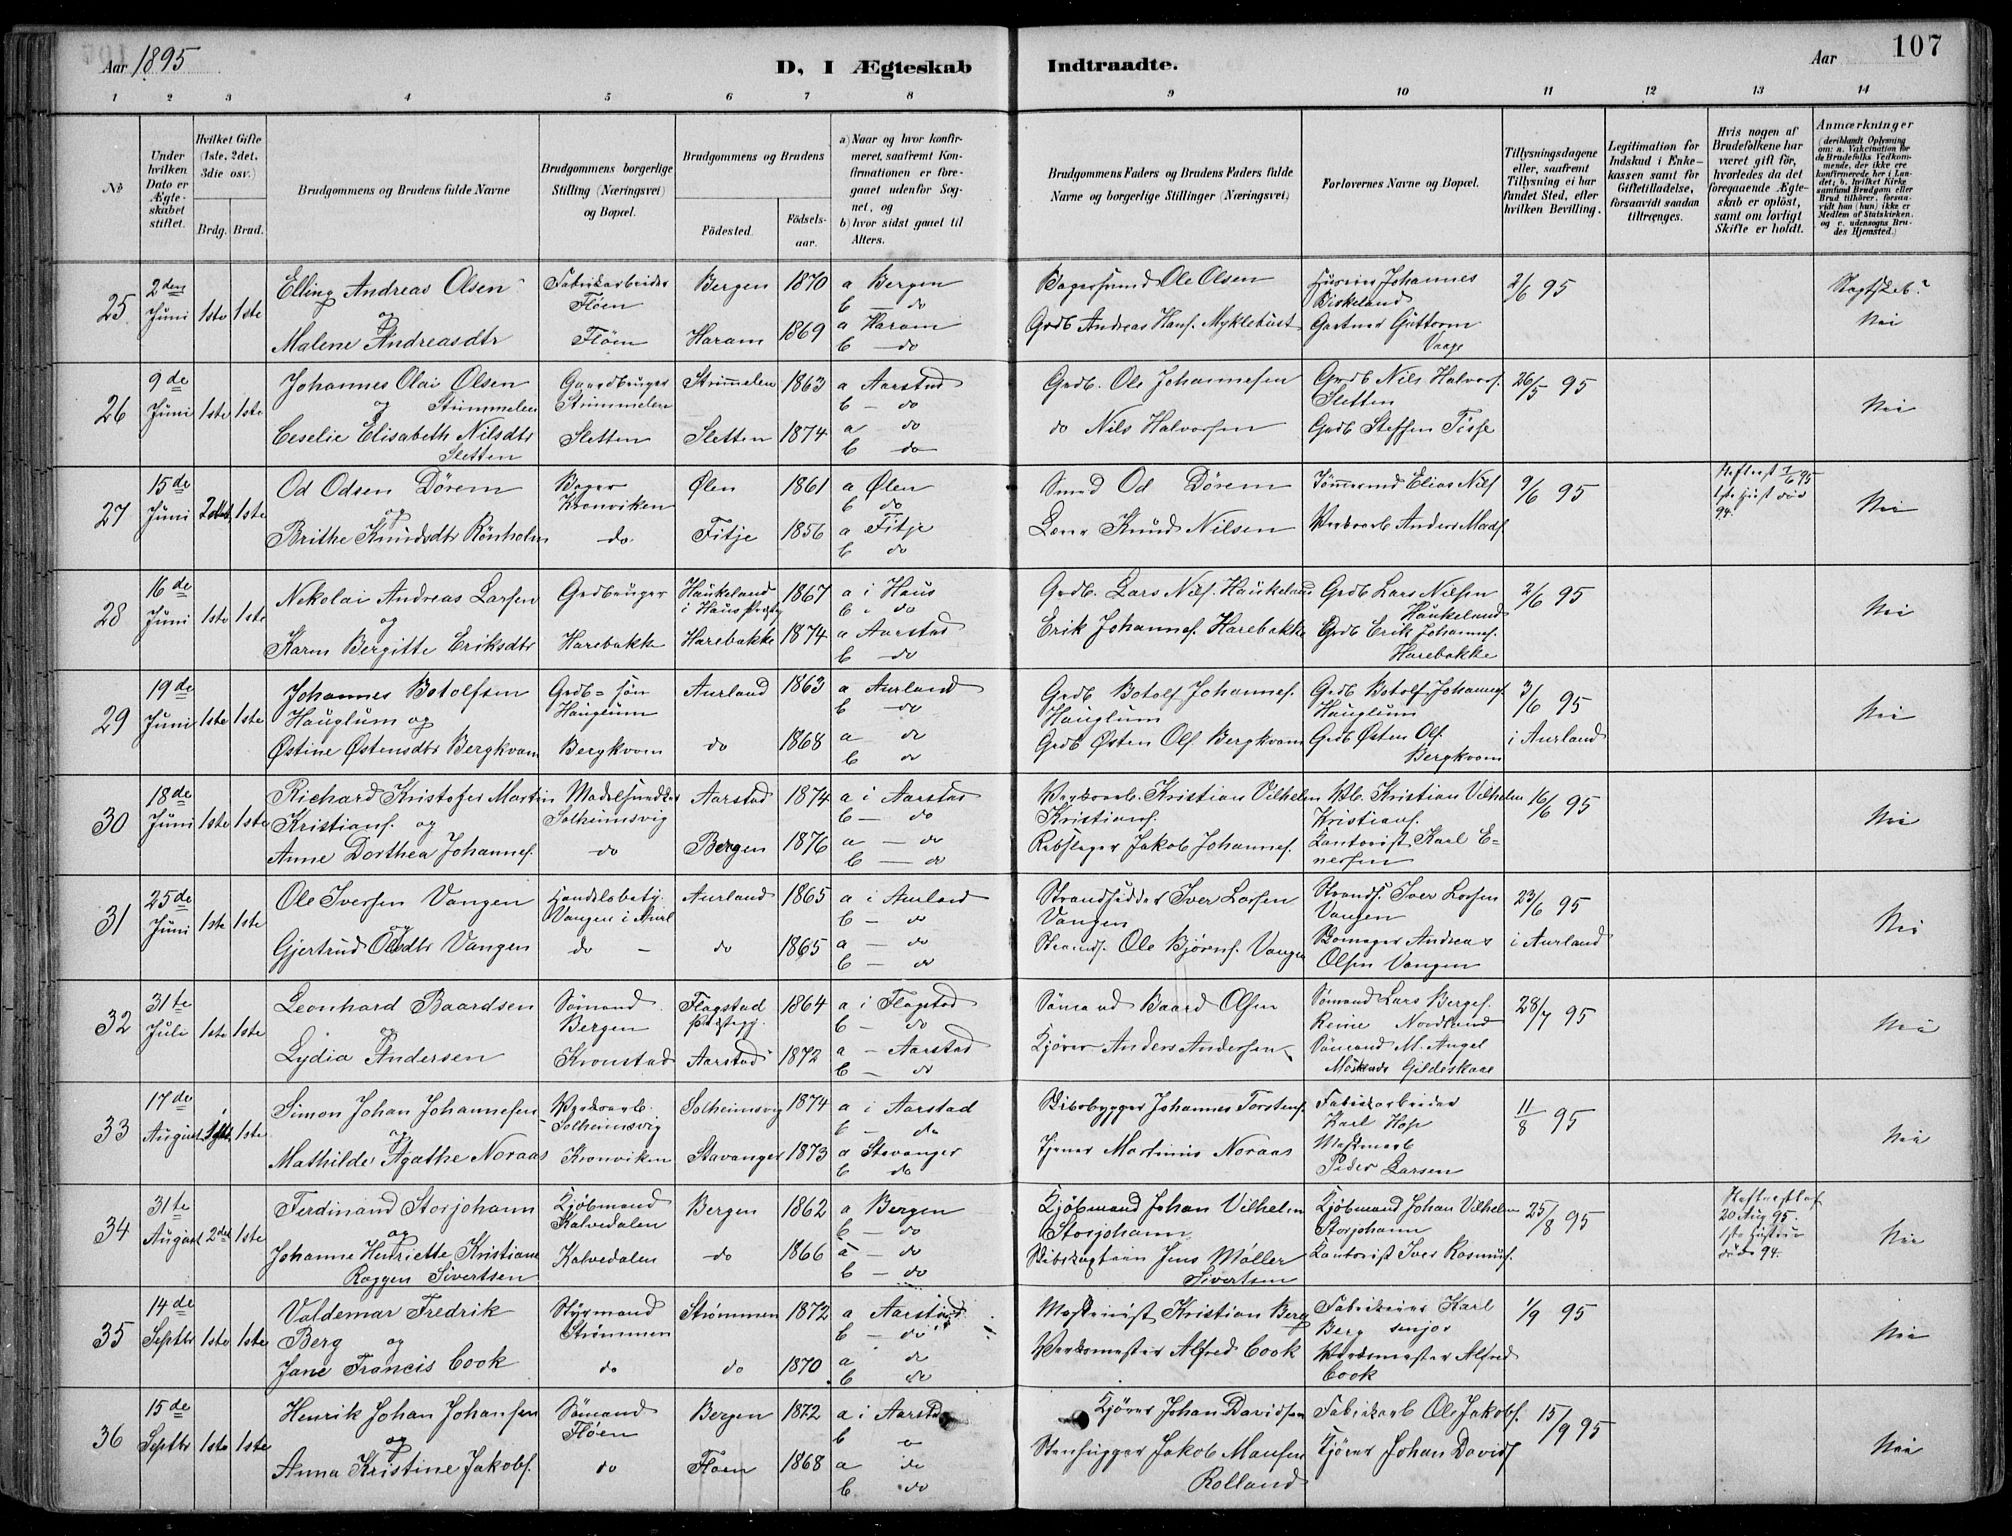 Aar 1895
D, I Ægteskab
Indtraadte.
Aar
107
1 2 3 4 5 6 7 8 9 10 11 12 13 14
No
Under hvilken Dato er Ægteskabet stiftet.
Hvilket Gifte (1ste, 2det, 3die osv.)
Brdg. Brud.
Brudgommens og Brudens fulde Navne
Brudgommens borgerlige Stilling (Næringsvei) og Bopæl.
Brudgommens og Brudens
Födested.
Födselsaar.
a) Naar og hvor konfirmeret, saafremt Konfirmationen er foregaaet udenfor Sognet, og
b) hvor sidst gaaet til Alters.
Brudgommens Faders og Brudens Faders fulde Navne og borgerlige Stillinger (Næringsvei)
Forlovernes Navne og Bopæl.
Tillysningsdagene eller, saafremt Tillysning ei har fundet Sted, efter hvilken Bevilling.
Legitimation for Indskud i Enkekassen samt for Giftetilladelse, forsaavidt saadan tiltrænges.
Hvis nogen af Brudefolkene har været gift för, hvorledes da det foregaaende Ægteskab er oplöst, samt om lovligt Skifte er holdt.
Anmærkninger
(deriblandt Oplysning om: a. Vakcination for de Brudefolks Vedkommende, der ikke ere konfirmerede her i Landet; b. hvilket Kirkesamfund Brudgom eller Brud tilhörer, forsaavidt han (hun) ikke er Medlem af Statskirken, og c. udensogns Brudes Hjemsted.)
25 2den Juni 1ste 1ste Elling Andreas Olsen Fabrikarbeider Fløen Bergen 1870 a Bergen b — do Ole Olsen Johannes Birkeland 2/6 95
og Malene Andreasdtr Fløen Haram 1869 a Haram b — do Grdb Andreas Hans. Myklebust Gartner Guttorm Vaage Nei
26 9de Juni 1ste 1ste Johannes Olai Olsen Strimmelen Gaardbruger Strimmelen Strimmelen 1863 a Aarstad b — do Grdb. Ole Johannesen Grdb Nils Halvors. Sletten 26/5 95
og Ceselie Elisabeth Nilsdtr Sletten Sletten Sletten 1874 a do b do do Nils Halvorsen Grdb Steffen Nei
27 15de Juni 2det 1ste Od Odsen Dörem Bager Kronviken Ølen 1861 a Ølen b do Smed Od Dörem Tömmermd Elias Nils 9/6 95 1ste Hust död 94.
og Brithe Knudsdtr Rönholm do Fitje 1856 a Fitje b do Knud Nilsen Anders Mads. Nei
28 16de Juni 1ste 1ste Nekolai Andreas Larsen Grdbruger Haukeland i Haus 1867 a i Haus b i do Grdb. Lars Nils. Haukeland Grdb Lars Nilsen Haukeland 2/6 95
og Karen Bergitte Eriksdtr Harebakke Harebakke 1874 a Aarstad b — do Erik Johannes. Harebakke Grdb Erik Johannes. Harebakke Nei
29 19de Juni 1ste 1ste Johannes Botolfsen Hauglum og Grdb=søn Hauglum Aurland 1863 a Aurland b — do Grdb Botolf Johannes. Hauglum Grdb Botolf Johannes Hauglum 3/6 95
Østine Østensdtr Bergkvam Bergkvam do 1868 a do b do Grdb Østen Ols. Bergkvam Grdb Østen Ols. Bergkvam i Aurland Nei
30 18de Juni 1ste 1ste Richard Kristofer Martin Kristians. og Solheimsvig Aarstad 1874 a i Aarstad b — do Kristian Vilhelm Kristians. Kristian Vilhelm Kristians. 16/6 95
Anne Dorthea Johannes. do Bergen 1876 a — do b — do Rebslager Jakob Johannes. Kontorist Karl Enersen Nei
31 25de Juni 1ste 1ste Ole Iversen Vangen Vangen i Aurl Aurland 1865 a i Aurland b — do Strandsidder Iver Larsen Vangen Strands. Iver Larsen Vangen 23/6 95
og Gjertrud Olesdtr Vangen do — do 1865 a — do b — do Strands. Ole Bjørns. Vangen Andreas Olsen Vangen i Aurland Nei
32 31te Juli 1ste 1ste Leonhard Baardsen Sømand Bergen Flagstad 1864 a i Flagstad b — do Sømand Baard Olsen Sømand Lars Berges. Reine Nordland 28/7 95
og Lydia Andersen Kronstad Aarstad 1872 a — Aarstad b — do Kjører Anders Andersen Sömand M. Angel Gildeskaal Nei
33 17de August 1ste 1ste Simon Johan Johannesen Solheimsvig Solheimsvig 1874 a i Aarstad b — do Skibsbygger Johannes Torstens. Fabrikarbeider Karl Hop 11/8 95
og Mathilde Agathe Noraas Kronviken Stavanger 1873 a Stavanger b do Tjener Martinius Noraas Peder Larsen Nei
34 31te August 2det 1ste Ferdinand Storjohann Kjöbmand Kalvedalen Bergen 1862 a Bergen b — do Kjöbmand Johan Vilhelm Storjohann Kjöbmand Johan Vilhelm Storjohann 25/8 95 20 Aug 95. 1ste Hustru död 94.
og Johanne Henriette Kristiane Roggen Sivertsen Kalvedalen do 1866 a — do b — do Skibskaptein Jens Møller Sivertsen Kontorist Iver Rasmus. Nei
35 14de Septbr 1ste 1ste Valdemar Fredrik Berg og Styrmand Strømmen Strømmen 1872 a Aarstad b — do Maskinist Kristian Berg Fabrikeier Karl Berg senjor 1/9 95
Jane Francis Cook do do 1870 a do b do Verksmester Alfred Cook Verksmester Alfred Cook Nei
36 15de Septbr 1ste 1ste Henrik Johan Johansen Sømand Fløen Bergen 1872 a i Aarstad b Kjører Johan Davidsen Fabrikarb Ole Jakobs. 15/9 95
og Anna Kristine Jakobs. do Fløen 1868 a do b do Stenhugger Jakob Monsen Rolland Kjører Johan Davids Nei